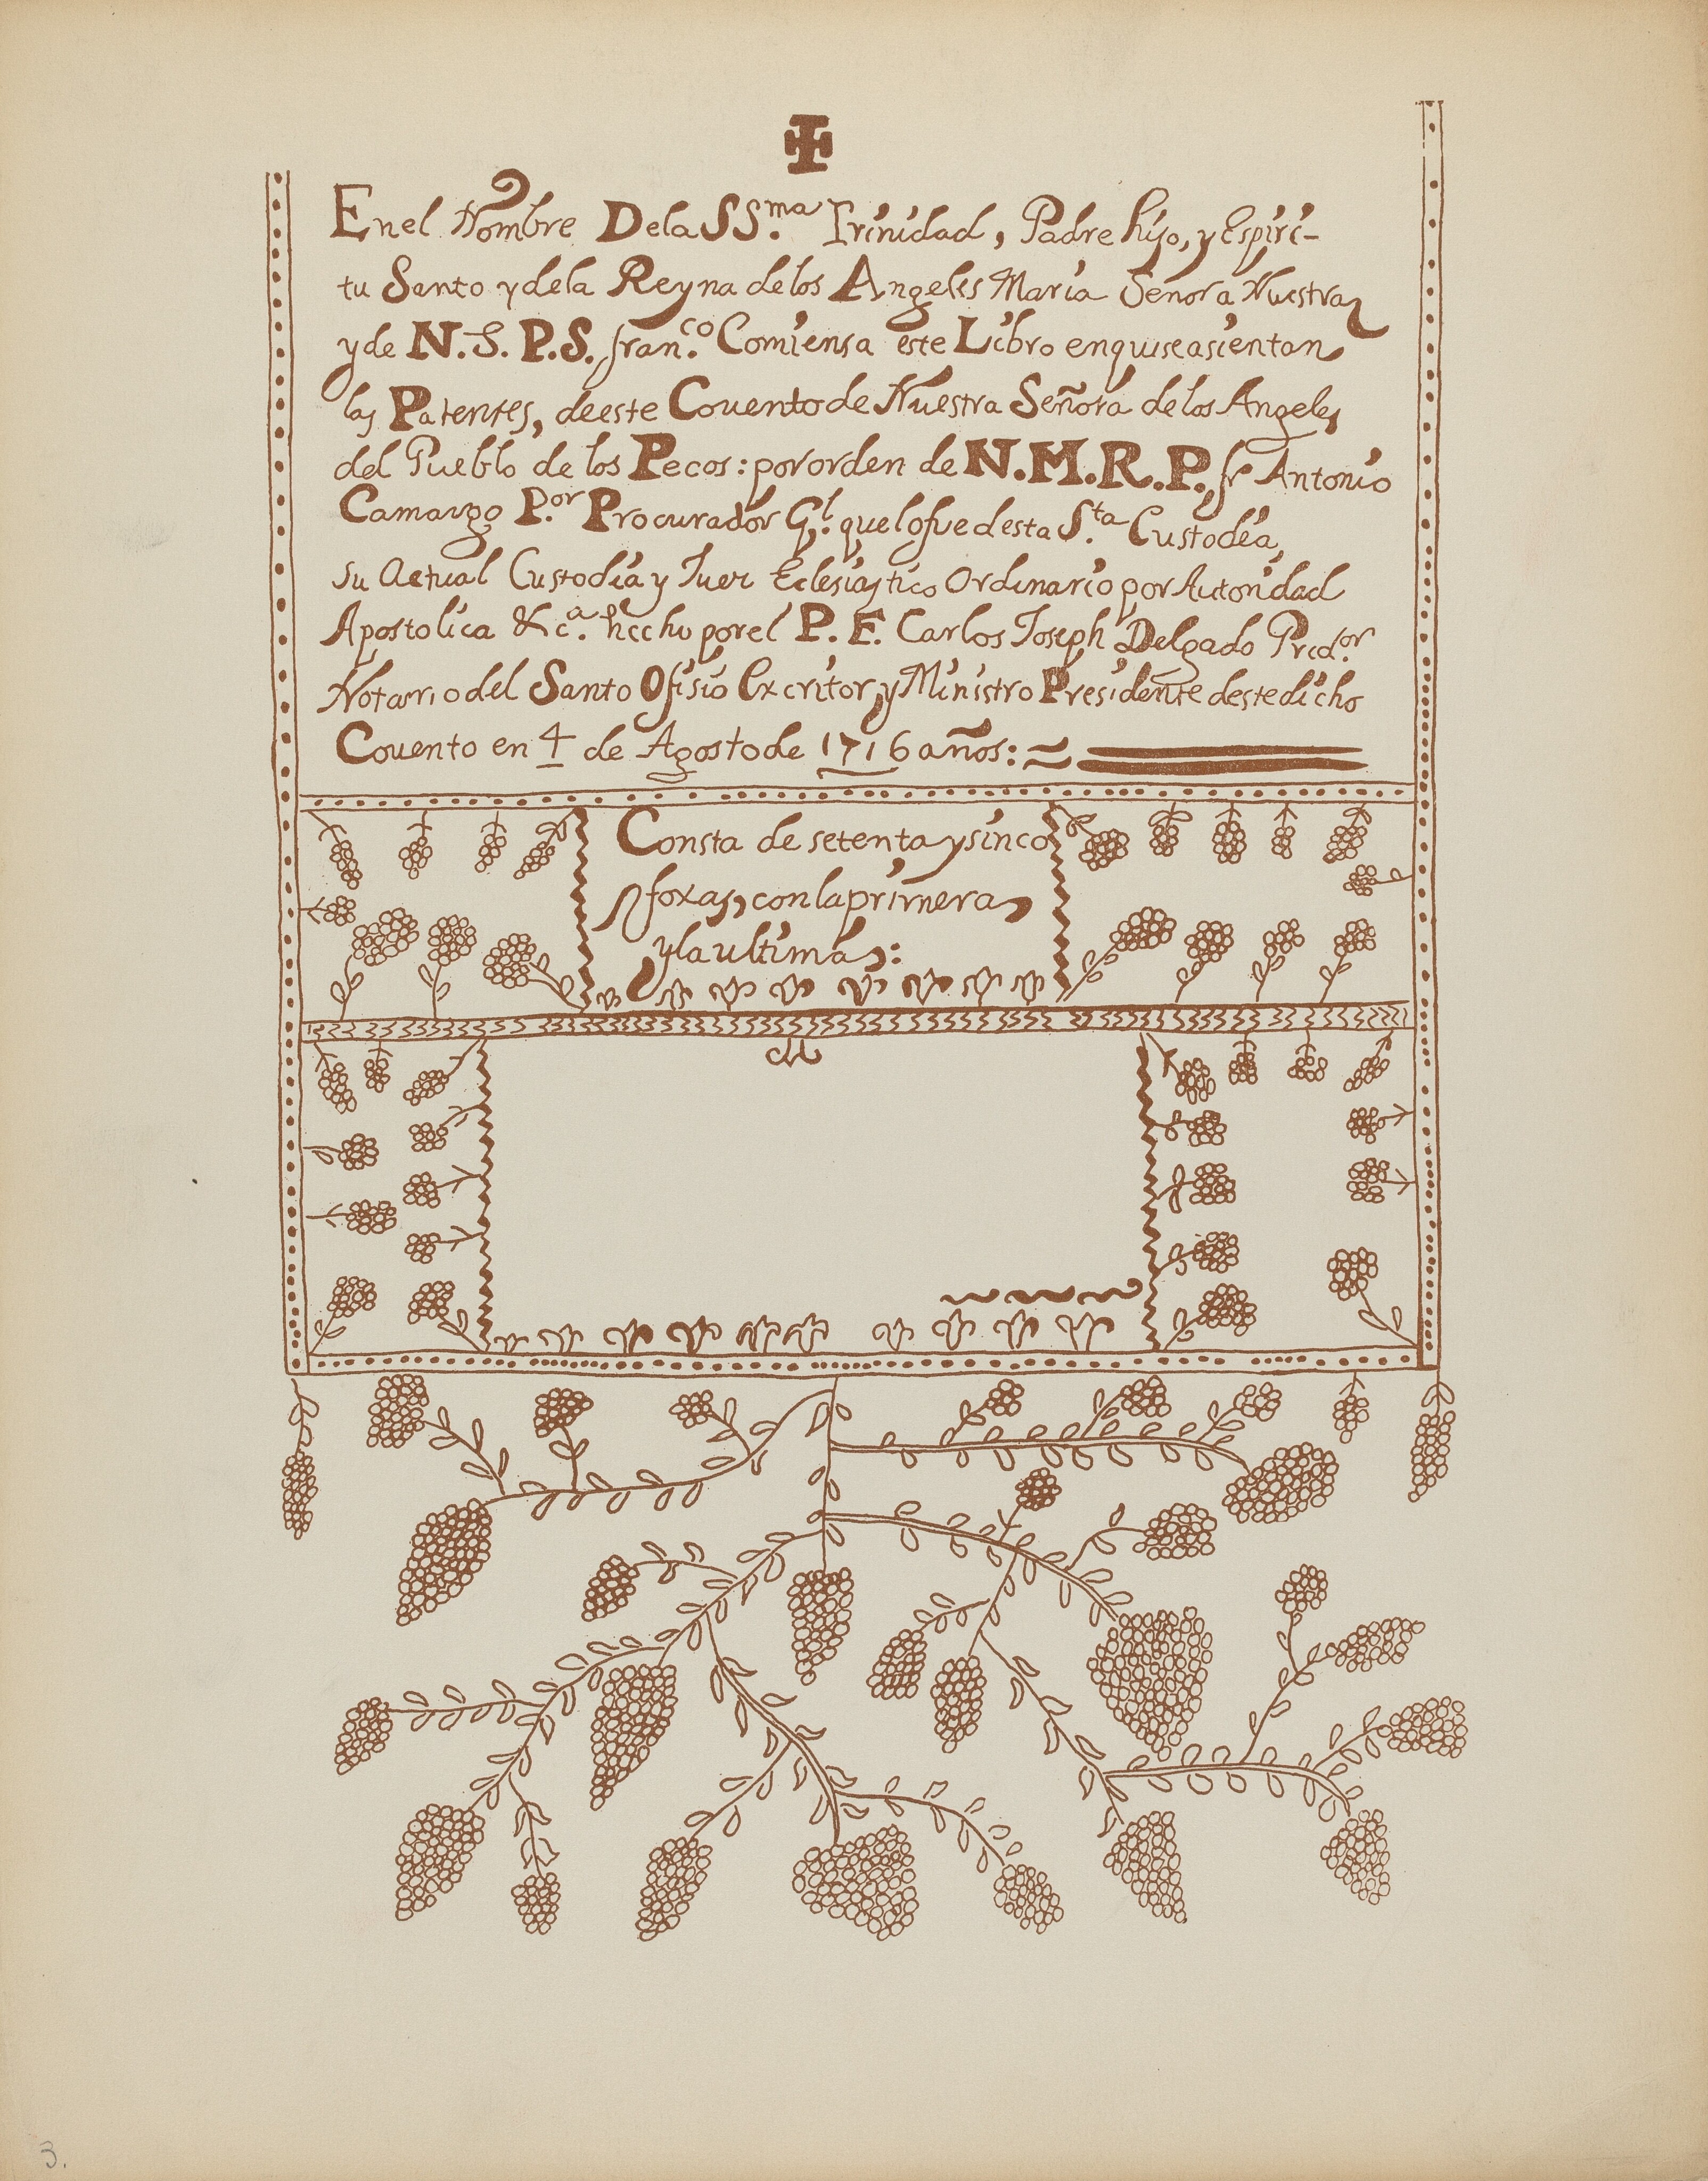 En el Nombre De la SS.ma Trinidad, Padre hijo, y Espiri-
tu Santo y dela Reyna de los Angeles Maria Señora Nuestra
y de N. S. P. S. fran.co Comiensa este Libro en quiseasientan
las Patentes, de este Couento de Nuestra Señora de los Angeles
del Pueblo de los Pecos: por orden de N. M. R. P. fr Antonio
Camargo P.or Procurador G.l que lo fue desta S.ta Custodia,
su Actual Custodia y Juez Eclesiastico Ordinario por Autoridad
Apostolica &c.a hecho por el P. F. Carlos Joseph Delgado Pred.or
Notario del Santo Ofisio Excritor, y Ministro Presidente deste dicho
Couento en 4 de Agosto de 1716 años:
Consta de setenta y sinco
foxas, con la primera,
y la ultima:
3.